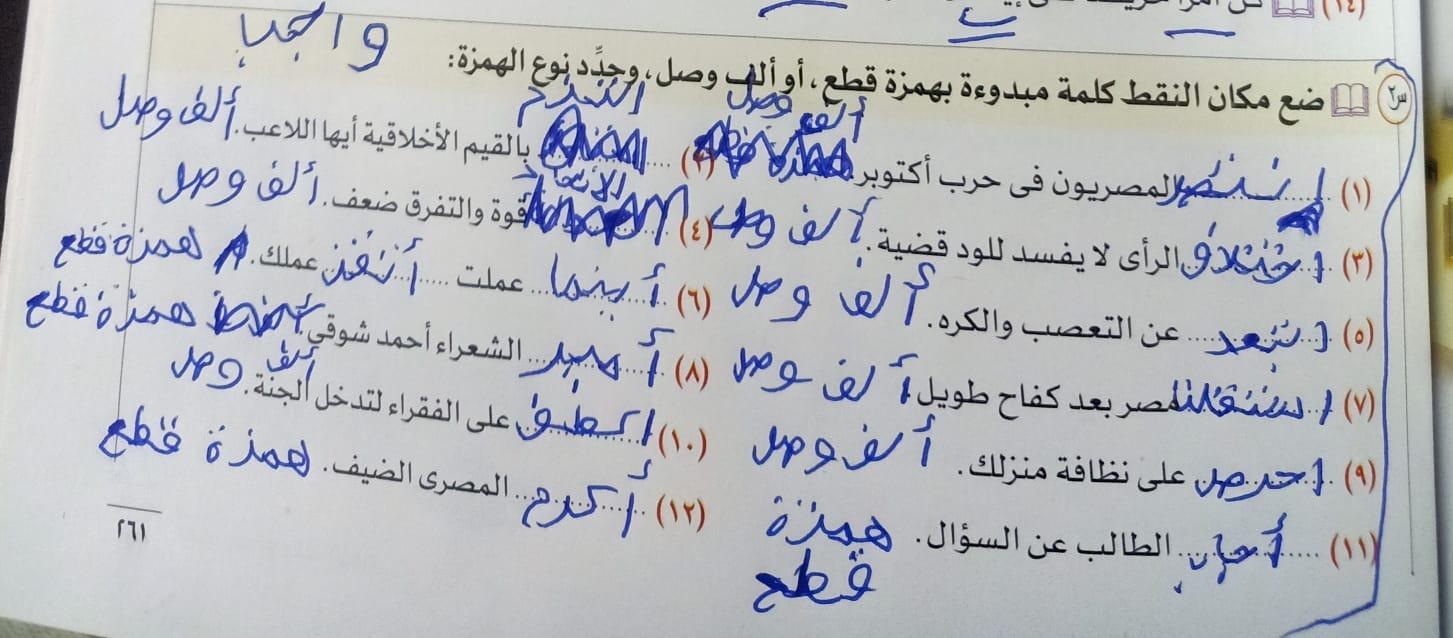 (١٤)
واجب
س٢ ضع مكان النقط كلمة مبدوءة بهمزة قطع، أو ألف وصل، وحدِّد نوع الهمزة:
(١) المصريون فى حرب أكتوبر ألف وصل
(٢) بالقيم الأخلاقية أيها اللاعب. ألف وصل
(٣) الرأى لا يفسد للود قضية. ألف وصل
(٤) الاتحاد قوة والتفرق ضعف. ألف وصل
(٥) ابتعد عن التعصب والكره. ألف وصل
(٦) أينما عملت أتقن عملك. همزة قطع
(٧) استقلت مصر بعد كفاح طويل ألف وصل
(٨) أمير الشعراء أحمد شوقى. همزة قطع
(٩) احرص على نظافة منزلك. ألف وصل
(١٠) على الفقراء لتدخل الجنة. ألف وصل
(١١) أجاب الطالب عن السؤال. همزة قطع
(١٢) أكرم المصرى الضيف. همزة قطع
٢٦١